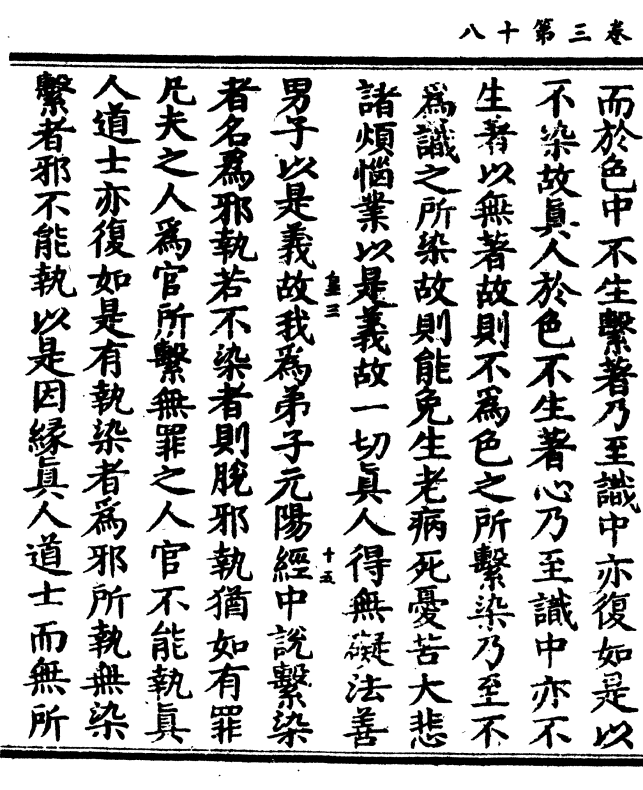 卷三第十八
而於色中不生繫著乃至識中亦復如是以
不染故眞人於色不生著心乃至識中亦不
生著以無著故則不爲色之所繫染乃至不
爲識之所染故則能免生老病死憂苦大悲
諸煩惱業以是義故一切眞人得無礙法善
三 十五
男子以是義故我爲弟子元陽經中說繫染
者名爲邪執若不染者則脫邪執猶如有罪
凡夫之人爲官所繫無罪之人官不能執眞
人道士亦復如是有執染者爲邪所執無染
繫者邪不能執以是因緣眞人道士而無所